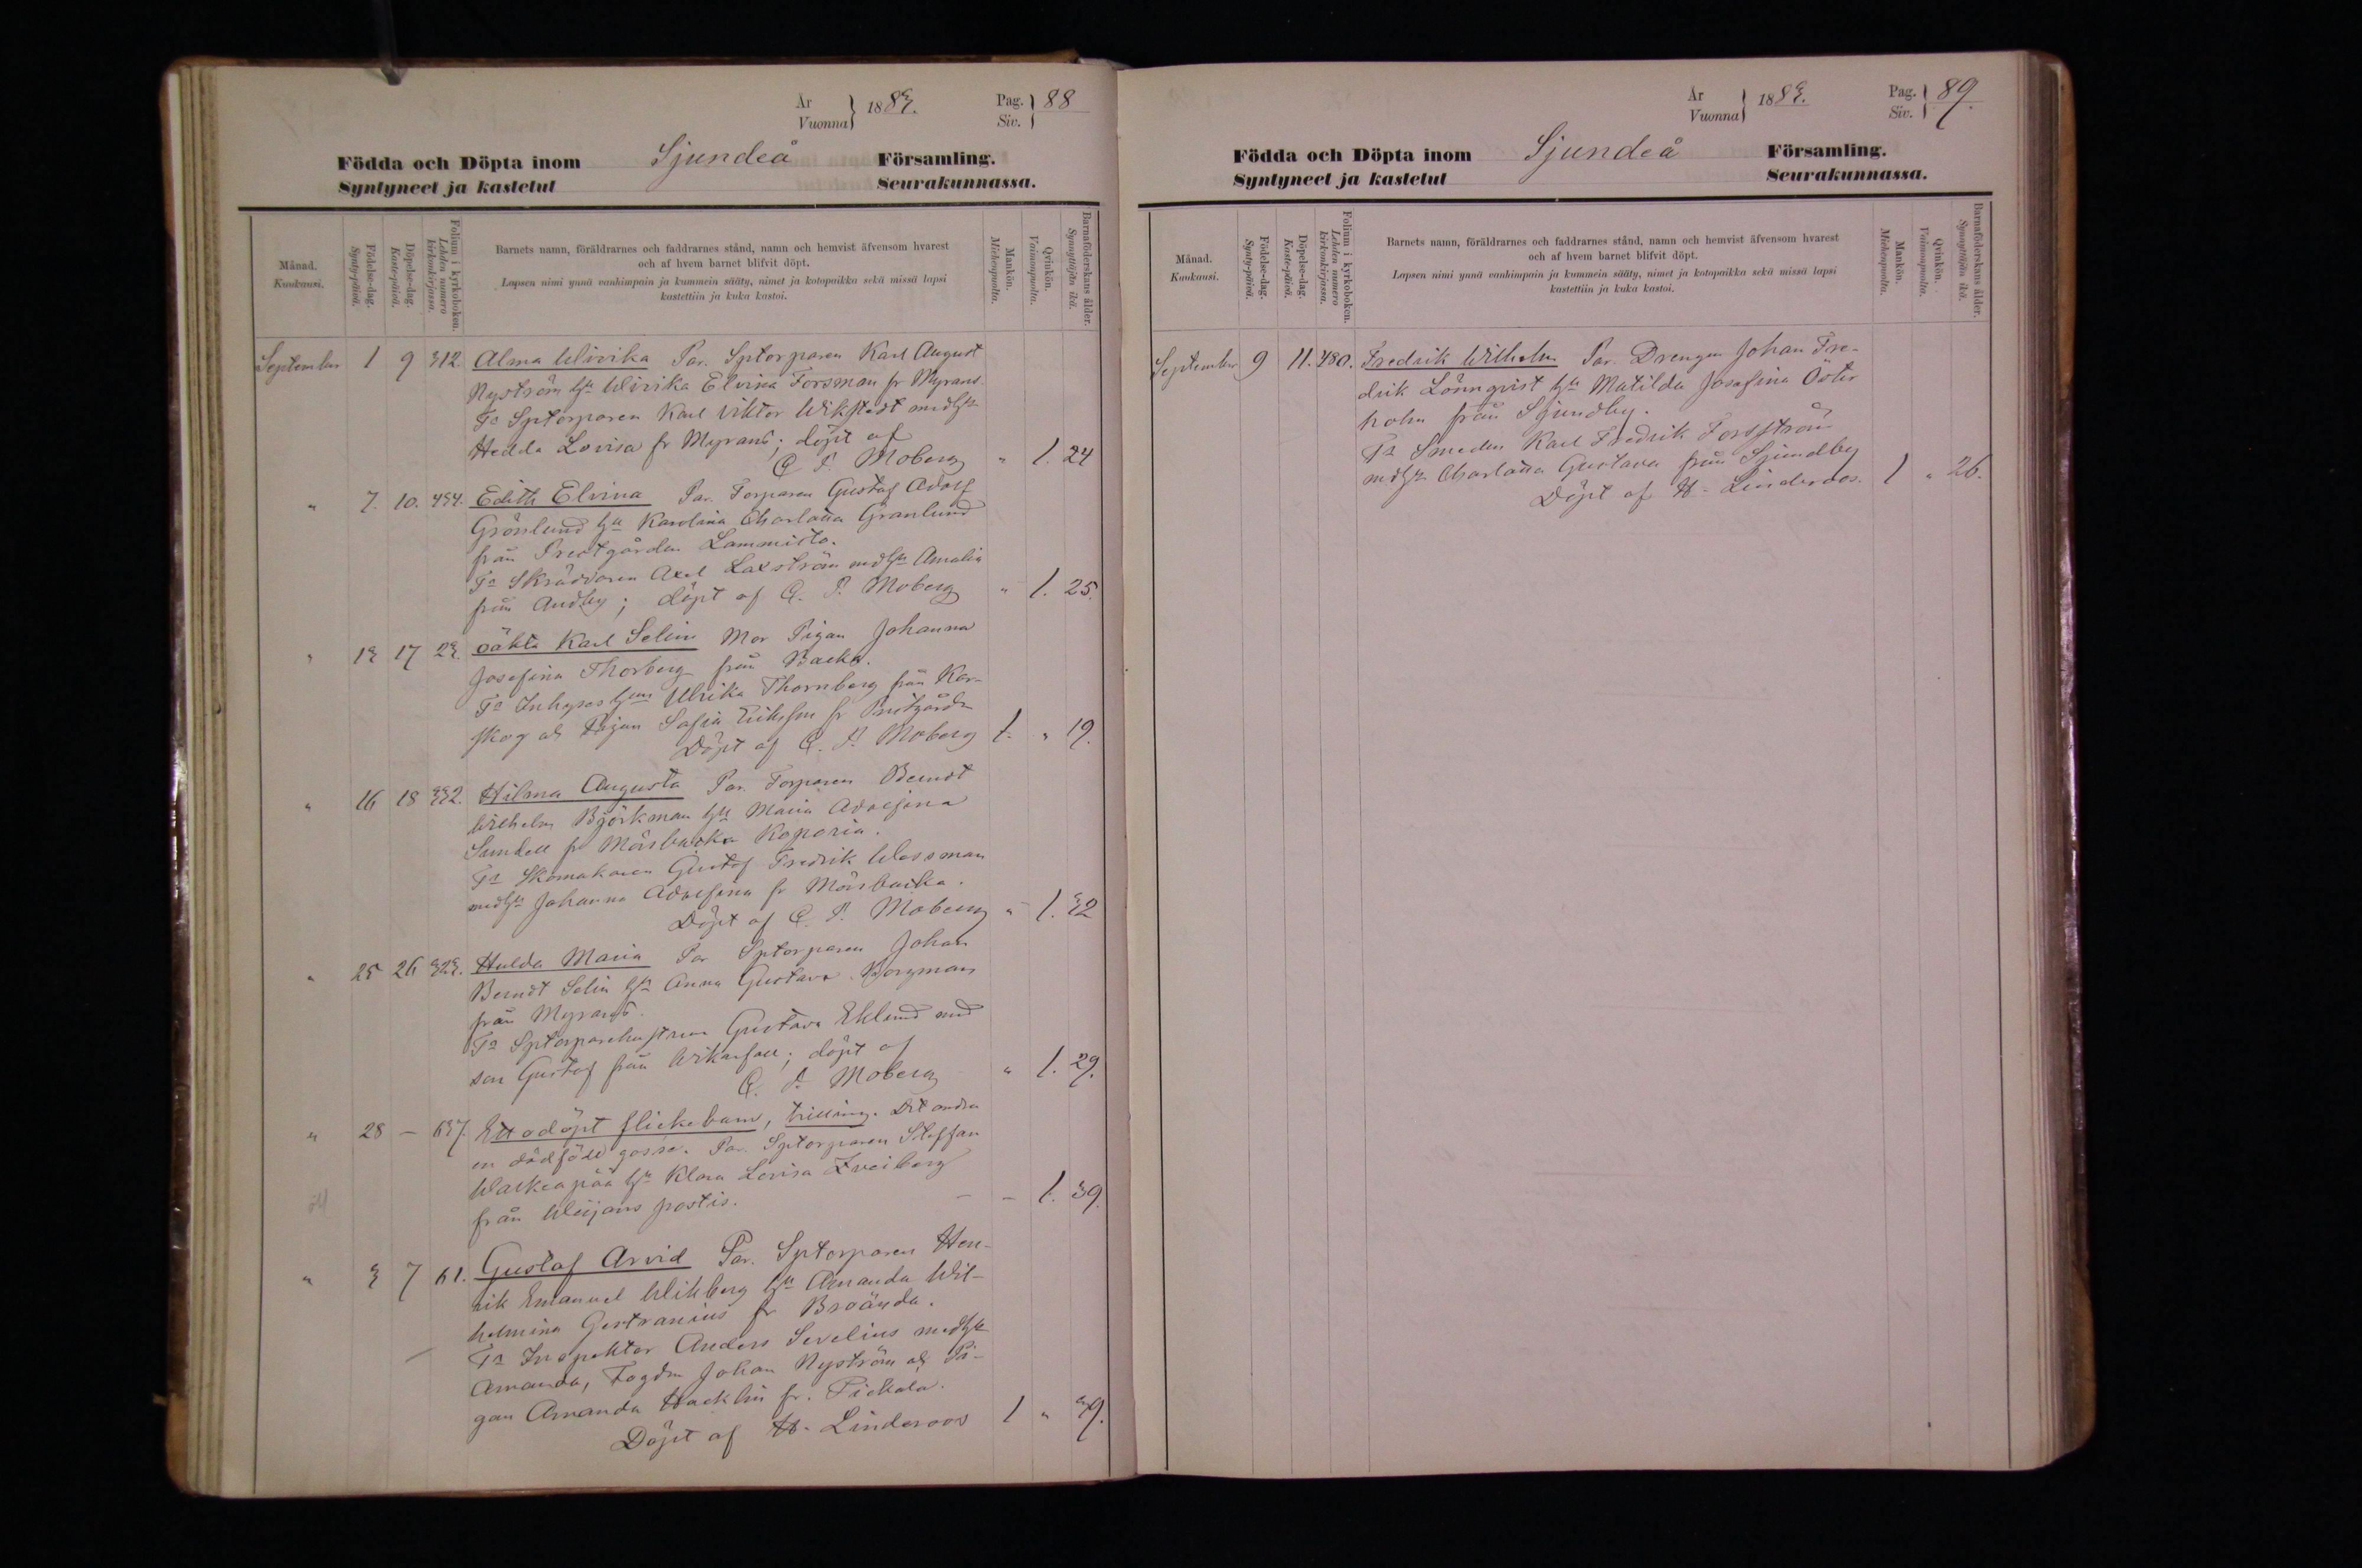 År
Vuonna
1883.
Pag.
Siv.
88
Födda och Döpta inom Sjundeå Församling.
Syntyneet ja kastetut Seurakunnassa.
Månad.
Kuukausi.
Födelse-dag.
Synty-päivä.
Döpelse-dag.
Kaste-päivä.
Folium i kyrkoboken.
Lehden numero kirkonkirjassa.
Barnets namn, föräldrarnes och faddrarnes stånd, namn och hemvist äfvensom hvarest
och af hvem barnet blifvit döpt.
Lapsen nimi ynnä vanhimpain ja kummein sääty, nimet ja kotopaikka sekä missä lapsi
kastettiin ja kuka kastoi.
Mankön.
Miehenpuolta.
Qvinkön.
Vaimonpuolta.
Barnaföderskans ålder.
Synnyttäjän ikä.
September 1 9 312 Alma Ulrika Par. Sptorparen Karl August
Nyström hu Ulrika Elvina Forsman fr Myrans
Fa Sptorparen Karl Viktor Wikstedt med hu
Hedda Lovisa fr Myrans; döpt af
C P. Moberg " 1. 24
" 7. 10. 454. Edith Elvina Par. Torparen Gustaf Adolf
Grönlund hu Karolina Charlotta Granlund
från Prestgården Lammisto.
Fa Skräddaren Axel Laxström med hu Amalia
från Andby; döpt af C. P. Moberg " 1. 25.
" 13 17 23. oäkta Karl Selim Mor Pigan Johanna
Josefina Thorberg från Backa.
Fa Inhyses Ulrika Thornberg från Kor-
skog o Pigan Sofia Eriksson fr Prestgården
Döpt af C. P. Moberg 1. " 19.
" 16 18 332. Hilma Augusta Par. Torparen Berndt
Wilhelm Björkman hu Maria Adolfina
Sundell fr Mörsbacka Koporia.
Fa Skomakaren Gustaf Fredrik Wessman
med hu Johanna Adolfina fr Mörsbacka.
Döpt af C. P. Moberg " 1. 32
" 25 26 323. Hulda Maria Par Sptorparen Johan
Berndt Selin hu Anna Gustava Borgman
från Myrans.
Fa Sptorparehustrun Gustava Eklund med
son Gustaf från; döpt af
C. P. Moberg " 1. 29.
" 28 – 637. Ett odöpt flickebarn, tvilling. Det andra
en dödfödd gosse. Par. Sptorparen Steffan
Walkeapää hu Klara Lovisa Zveiberg
från postis. – – 1. 39.
" 3 7 61. Gustaf Arvid Par. Sptorparen Hen-
rik Emanuel Wikberg hu Amanda Wil-
helmina Gertranius fr Broända.
Fa Inspektor Anders Sevelius med hu
Amanda, Fogden Johan Nyström o Pi-
gan Amanda Hacklin fr. Pickala.
Döpt af H. Linderoos 1 " 39.
År
Vuonna
1883.
Pag.
Siv.
89.
Födda och Döpta inom Sjundeå Församling.
Syntyneet ja kastetut Seurakunnassa.
Månad.
Kuukausi.
Födelse-dag.
Synty-päivä.
Döpelse-dag.
Kaste-päivä.
Folium i kyrkoboken.
Lehden numero kirkonkirjassa.
Barnets namn, föräldrarnes och faddrarnes stånd, namn och hemvist äfvensom hvarest
och af hvem barnet blifvit döpt.
Lapsen nimi ynnä vanhimpain ja kummein sääty, nimet ja kotopaikka sekä missä lapsi
kastettiin ja kuka kastoi.
Mankön.
Miehenpuolta.
Qvinkön.
Vaimonpuolta.
Barnaföderskans ålder.
Synnyttäjän ikä.
September 9 11. 480. Fredrik Wilhelm Par. Drengen Johan Fre-
drik Lönnqvist hu Matilda Josefina Öster
holm från Sjundby.
Fa Smeden Karl Fredrik Forsström
med hu Charlotta Gustava från Sjundby
Döpt af H. Linderoos. 1 " 26.